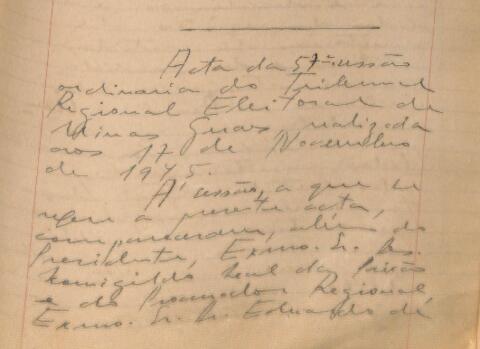 Acta da 57ª sessão
ordinaria do Tribunal
Regional Eleitoral de
Minas Geraes, realizada
aos 17 de Novembro
de 1945.
Á sessão, a que se
refere a presente acta,
compareceram, alem do
Presidente, Exmo. Sr. Des.
Leal da Paixão
e do Procurador Regional
Exmo. Sr. Dr. Eduardo de